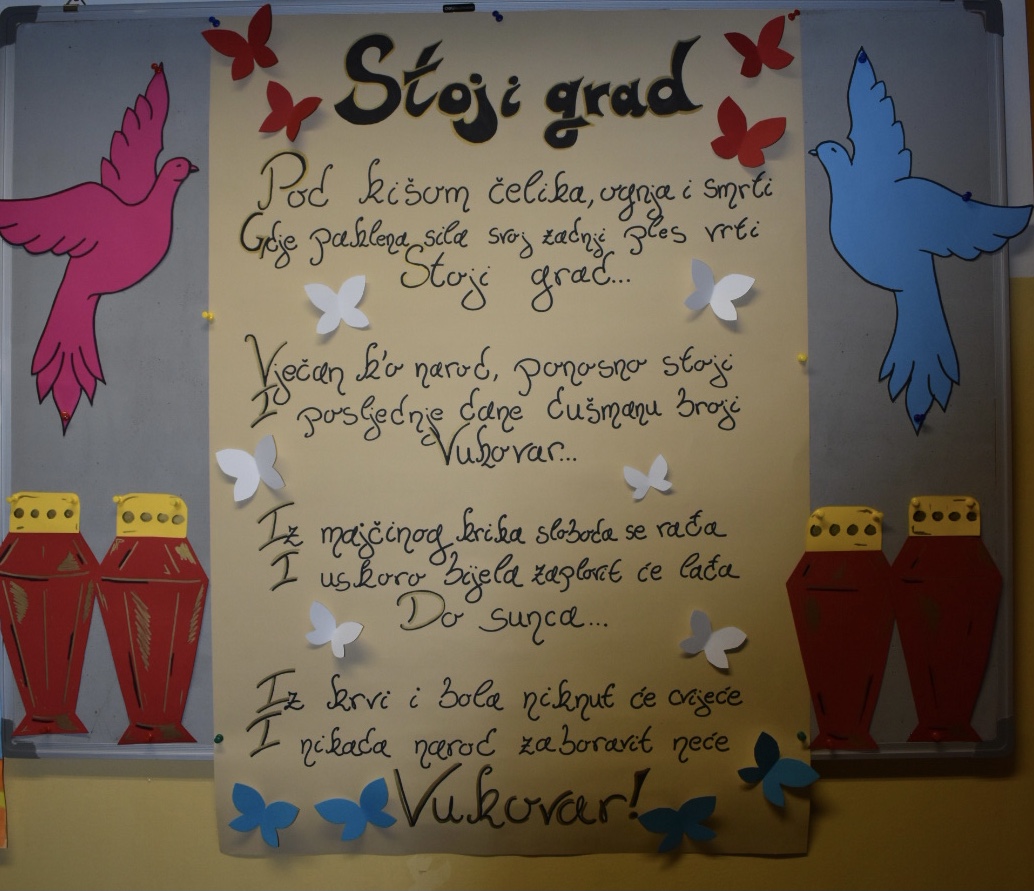 Stoji grad
Pod kišom čelika, ognja i smrti
Gdje paklena sila svoj zadnji ples vrti
Stoji grad...
Vječan k'o narod, ponosno stoji
I posljednje dane dušmanu broji
Vukovar...
Iz majčinog krika sloboda se rađa
I uskoro bijela zaplovit će lađa
Do sunca...
Iz krvi i bola niknut će cvijeće
I nikada narod zaboravit neće
Vukovar!